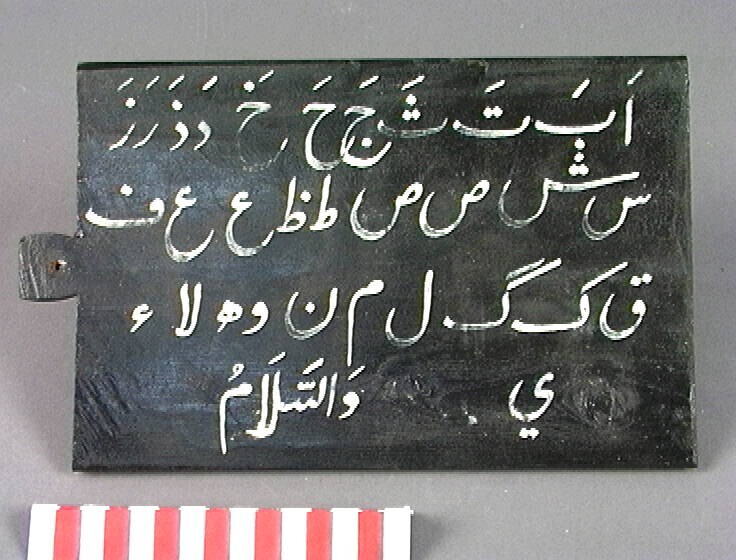 اَ بَ تَ ثَ جَ حَ خَ دَ ذَ رَ زَ
س ش ص ص ط ظ ع ع ف
ق ک گ ل م ن و ه لا ء
ي وَالسَّلَامُ